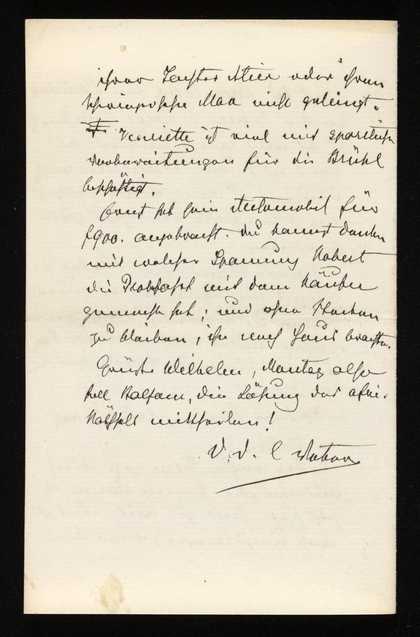 ihrer Tochter Alice oder ihrem
Schwiegersohn Max nicht gelingt.
Henriette ist viel mit sportlichen
Vorbereitungen für die Brühl
beschäftigt.
Ernst hat sein Automobil für
f900. angebracht. Du kannst denken
mit welcher Spannung Robert
die Probefahrt mit dem Käufer
gemacht hat, und ohne Stecken
zu bleiben, ihn nach Haus brachte.
Grüße Wilhelm, Montag also
soll Balsam, die Lösung des
Räthsels mittheilen!